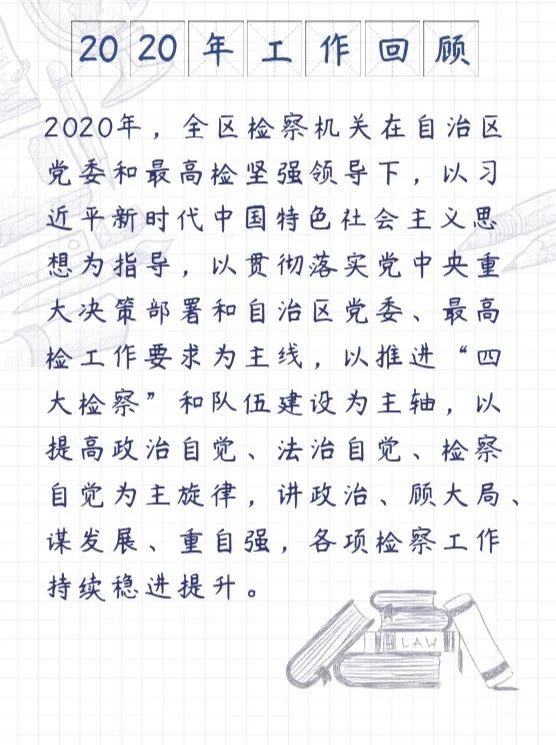 2020年工作回顾
2020年，全区检察机关在自治区
党委和最高检坚强领导下，以习
近平新时代中国特色社会主义思
想为指导，以贯彻落实党中央重
大决策部署和自治区党委、最高
检工作要求为主线，以推进“四
大检察”和队伍建设为主轴，以
提高政治自觉、法治自觉、检察
自觉为主旋律，讲政治、顾大局、
谋发展、重自强，各项检察工作
持续稳进提升。
LAW